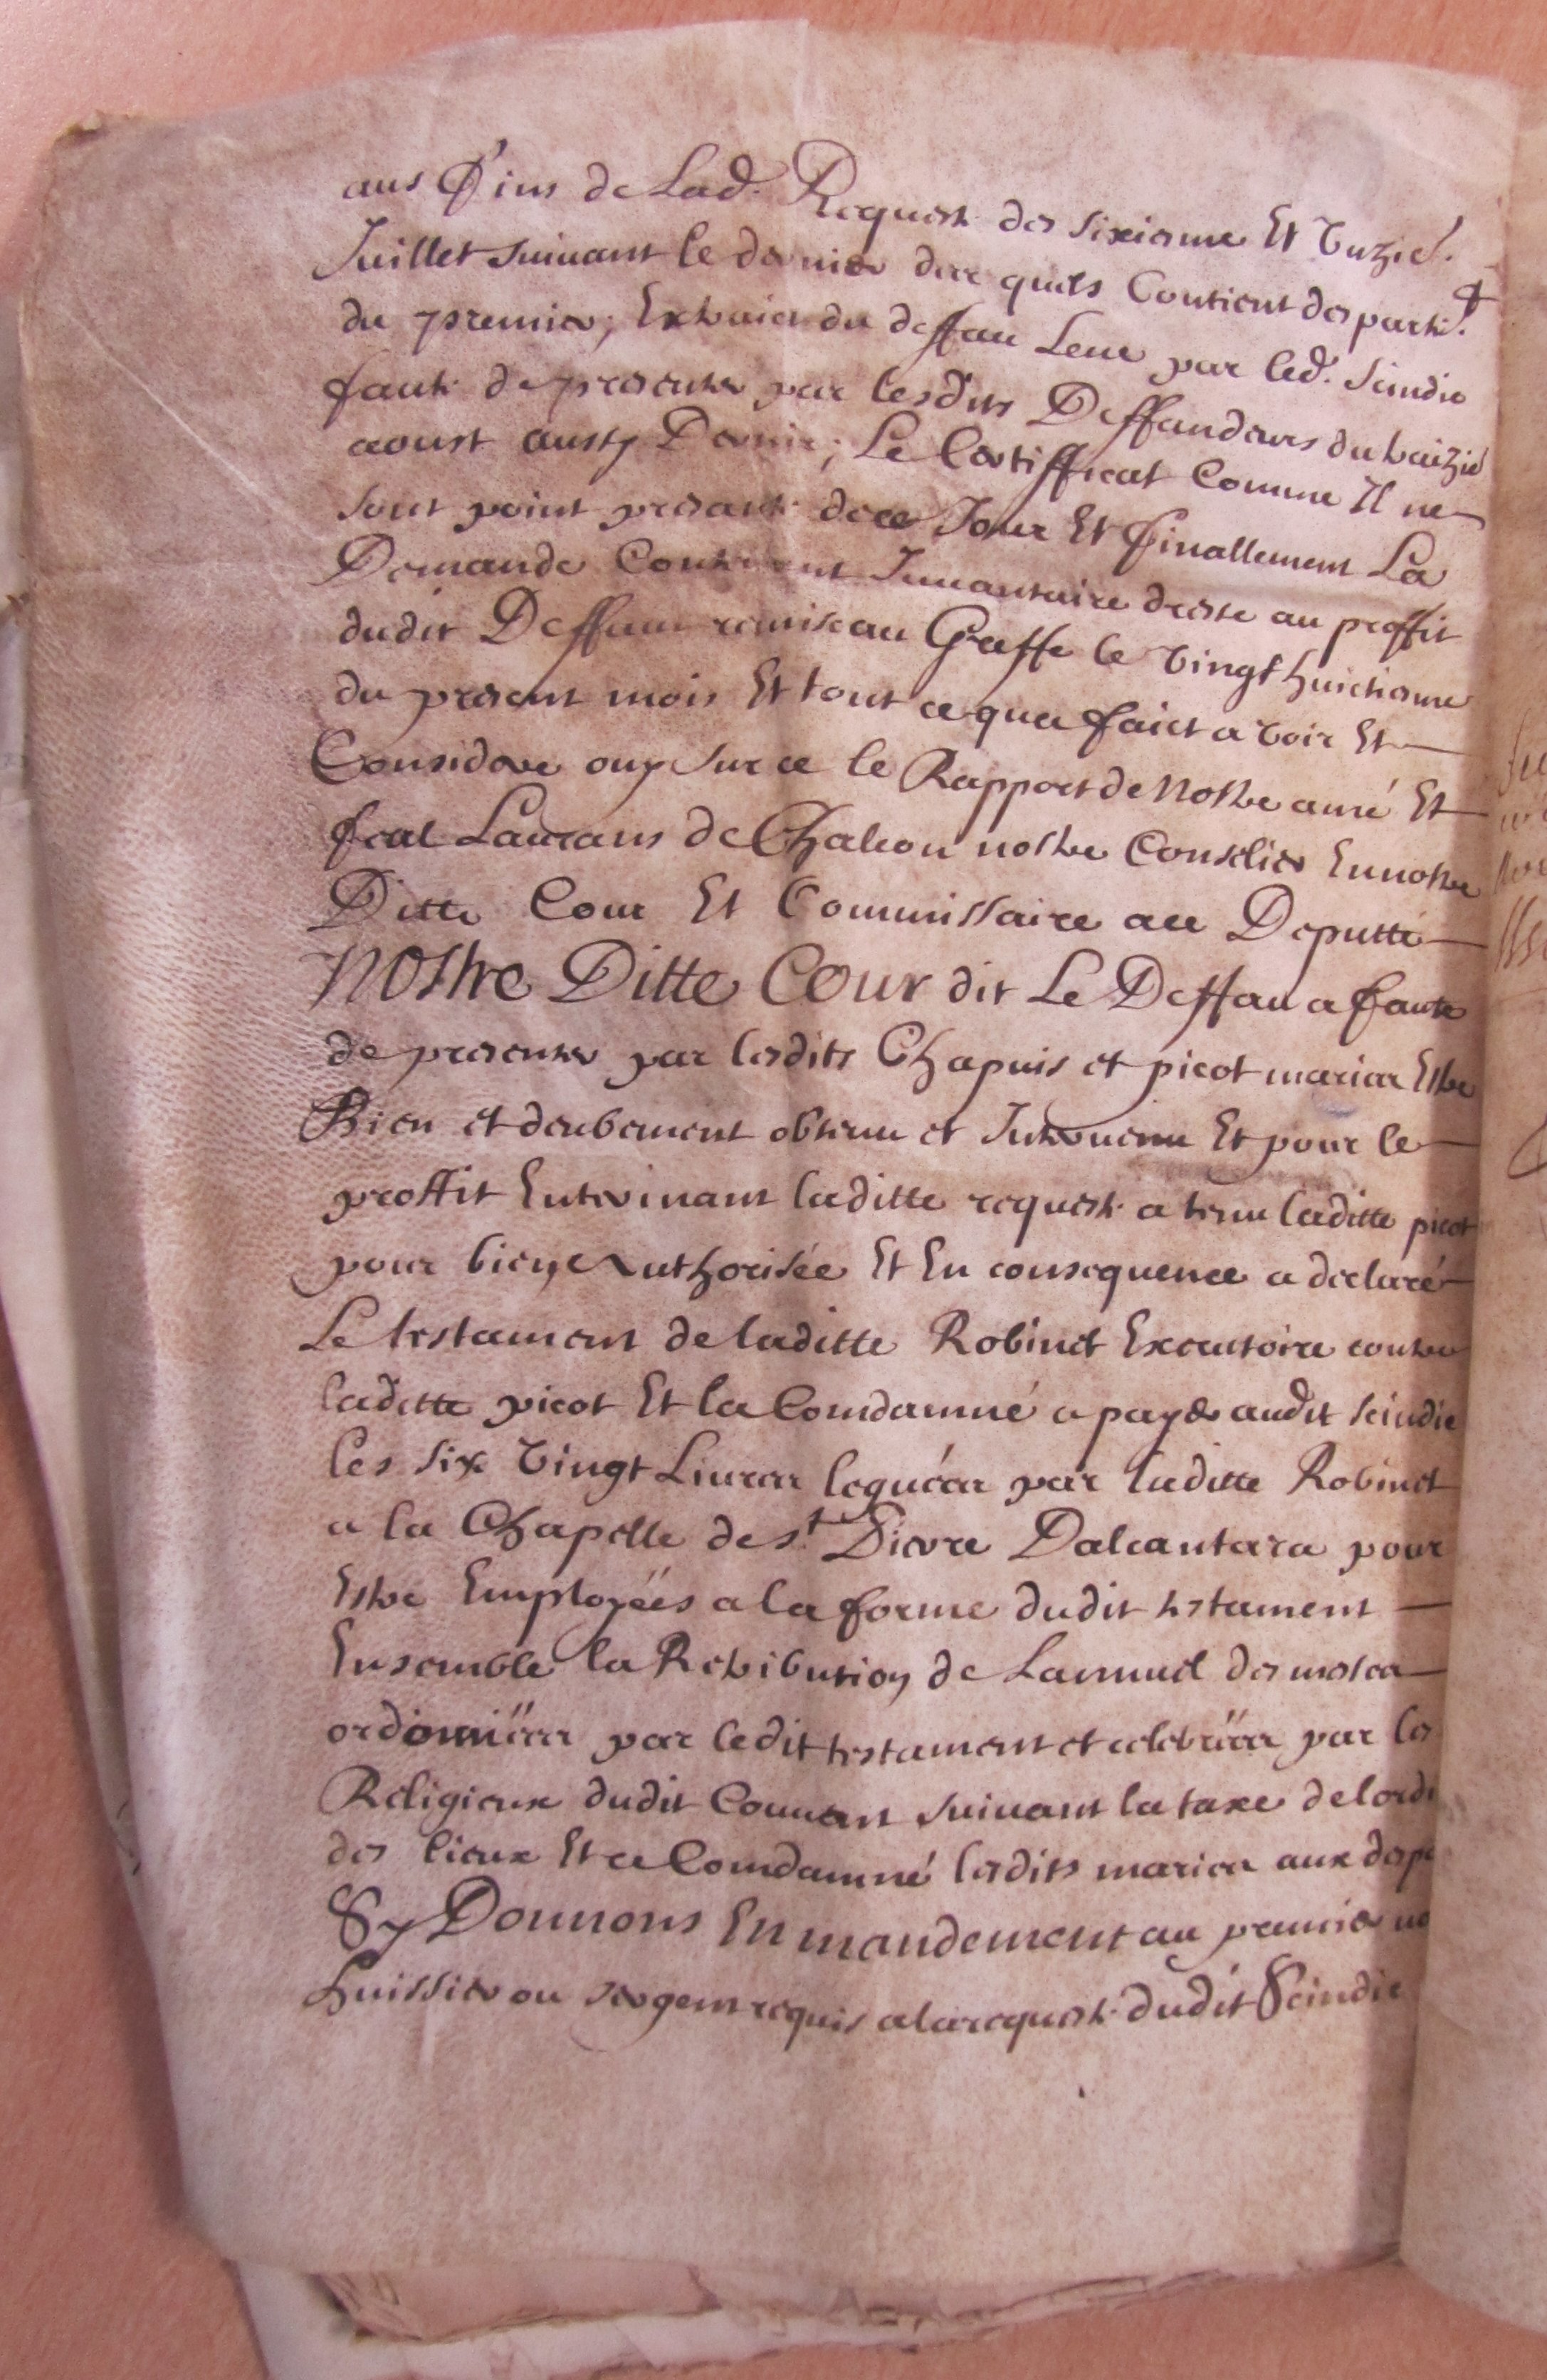 aus fins de Lad. Requeste des sixiesme Et Unzie.
Juillet suivant le dernier desquels Contient despartie.
du premier; Extraict du deffau Leué par led. Scindic
faute de presenter par lesdits Deffandeurs du traizie
aoust aussy Dernier; Le Certifficat Comme Il ne
sont point presanté de ce Jour Et finallement La
Demande Contenant Inuantaire dressé au proffit
dudit Deffaut remise au Greffe le Vingt huictiesme
du present mois Et tout ce que faict a Voir Et
Consideré ouy sur ce le Rapport de Nostre amé Et
feal Laurans de Chaleon nostre Conseliér En nostre
Ditte Cour Et Commissaire a ce Deputté
NOStre Ditte COUr dit Le Deffau a faute
de presenter par lesdits Chapuis et picot mariez Estre
Bien et deubement obtenu et Interuenu Et pour le
proffit Enterinant laditte requeste a tenu laditte picot
pour bien Authorisée Et En consequence a declaré
Le testament de laditte Robinet Executoire contre
laditte picot Et la Comdamné a payer audit scindic
les six Vingt Liures leguéez par laditte Robinet
a la Chapelle de st Pierre Dalcantara pour
Estre Employées a la forme dudit testament
Ensemble la Retribution de Lannuel des messes
ordonnéez par ledit testament et celebréez par les
Religieux dudit Couuent suiuant la taxe de lord
des lieux Et a Comdamné lesdits mariez aux desp
Sy Donnons En mandement au premier no
huissier ou sergent requis a la requeste dudit Scindic